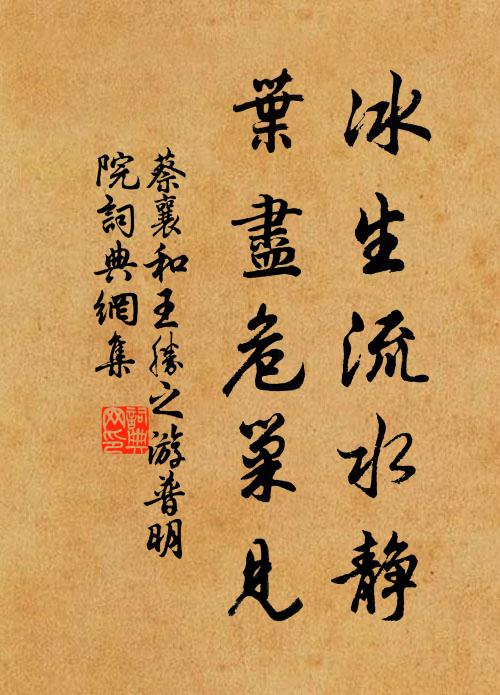 冰生流水静
葉盡危巢見
蔡襄和王勝之游普明
院詞典網集
詞典网印